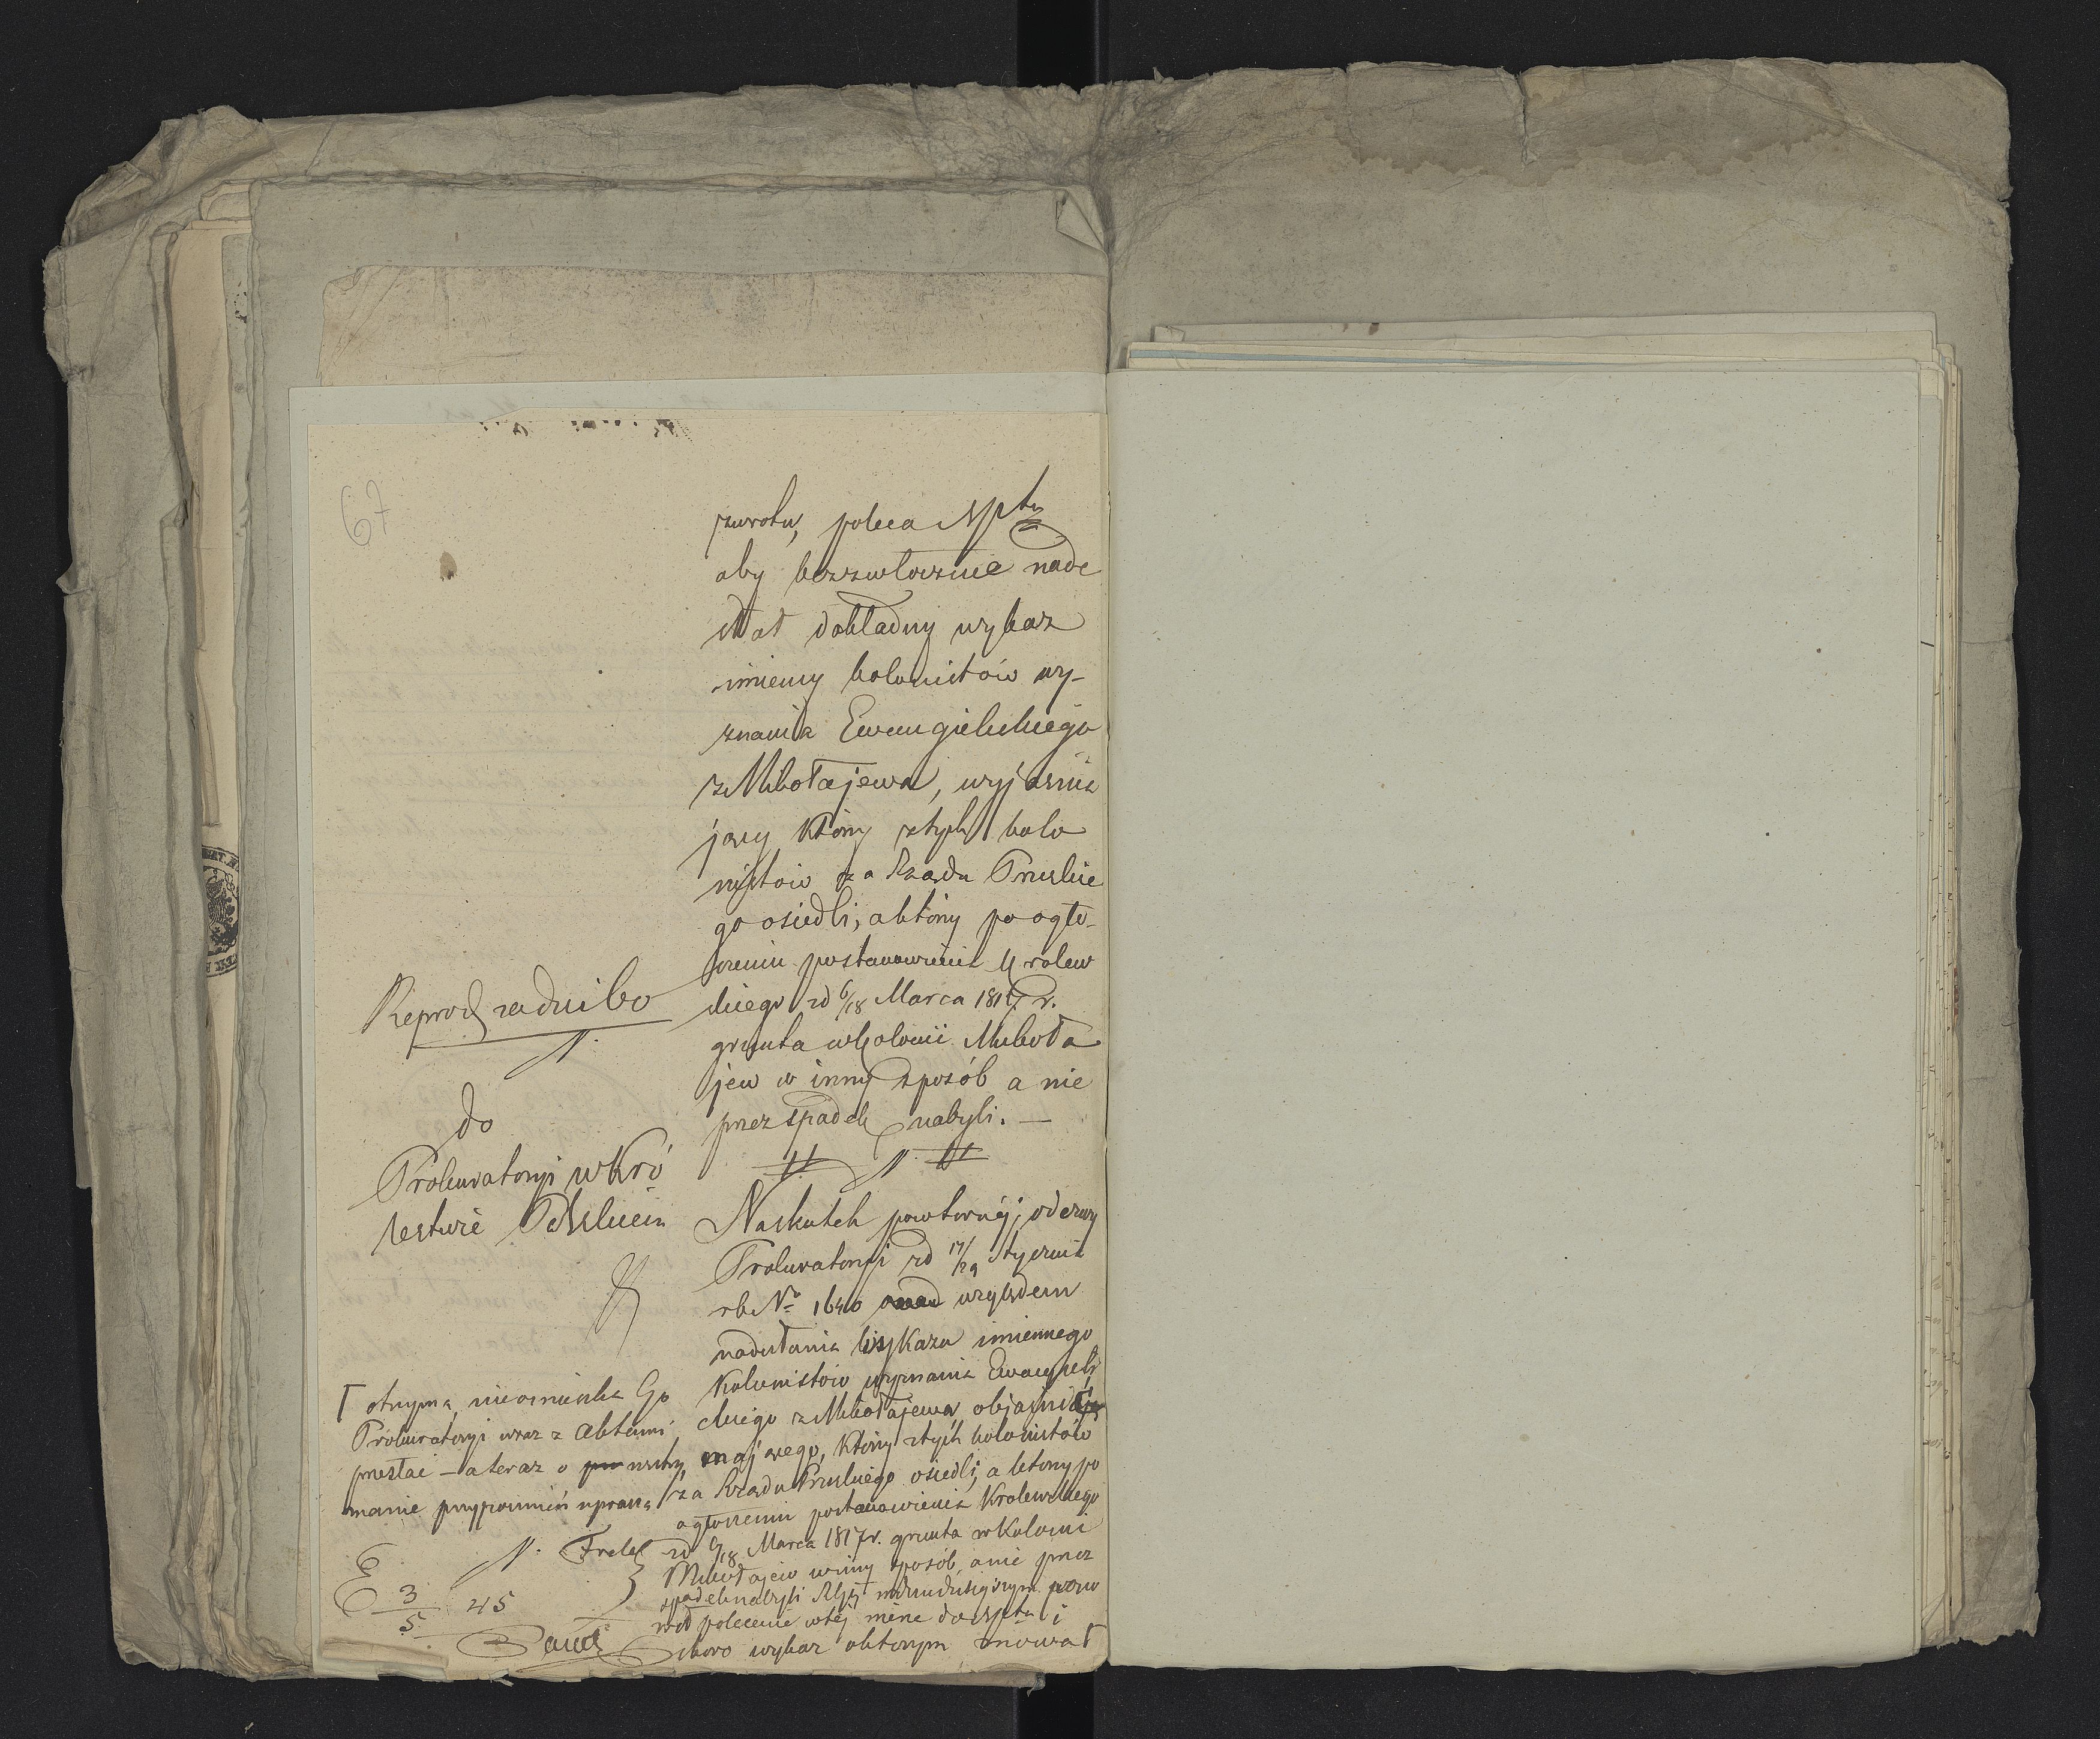 67
zwrotu, poleca Wptu
aby bezzwłocznie nade
słał dokładny wykaz
imienny kolonistów wy-
znania Ewangielickiego
z Mikołajewa, wyjaśnia
jący którzy z tych kolo
nistów za Rządu Pruskie
go osiedli, a którzy po ogło-
szeniu postanowienia Krolew
skiego zd 6/18 Marca 1817 r.
grunta w Kolonii Mikoła
jew w inny sposób a nie
przez spadek nabyli. —
Reprod za dni 60
N.
do
Prokuratoryi w Kró
lestwie Polskiem
Na skutek powtórnéj odezwy
Prokuratoryi zd 17/29 Stycznia
rb No 1640 względem
nadesłania wykazu imiennego
Kolonistów wyznania Ewangieli
ckiego z Mikołajewa objaśnia
mającego, którzy z tych kolonistów
za Rządu Pruskiego osiedli, a którzy po
ogłoszeniu postanowienia Krolewskiego
zd 6/18 Marca 1817 r. grunta w Kolonii
Mikołajew w inny sposób, a nie przez
spadek nabyli w dniu dzisiejszym pono
wił polecenie w téj mierze do Wptu i
skoro wykaz otrzym
otrzyma, nieomieszka Go
Prokuratoryi wraz z Aktami
przesłać — a teraz o wstrzy
manie przypomnień uprasza
N.
E 3/5 45